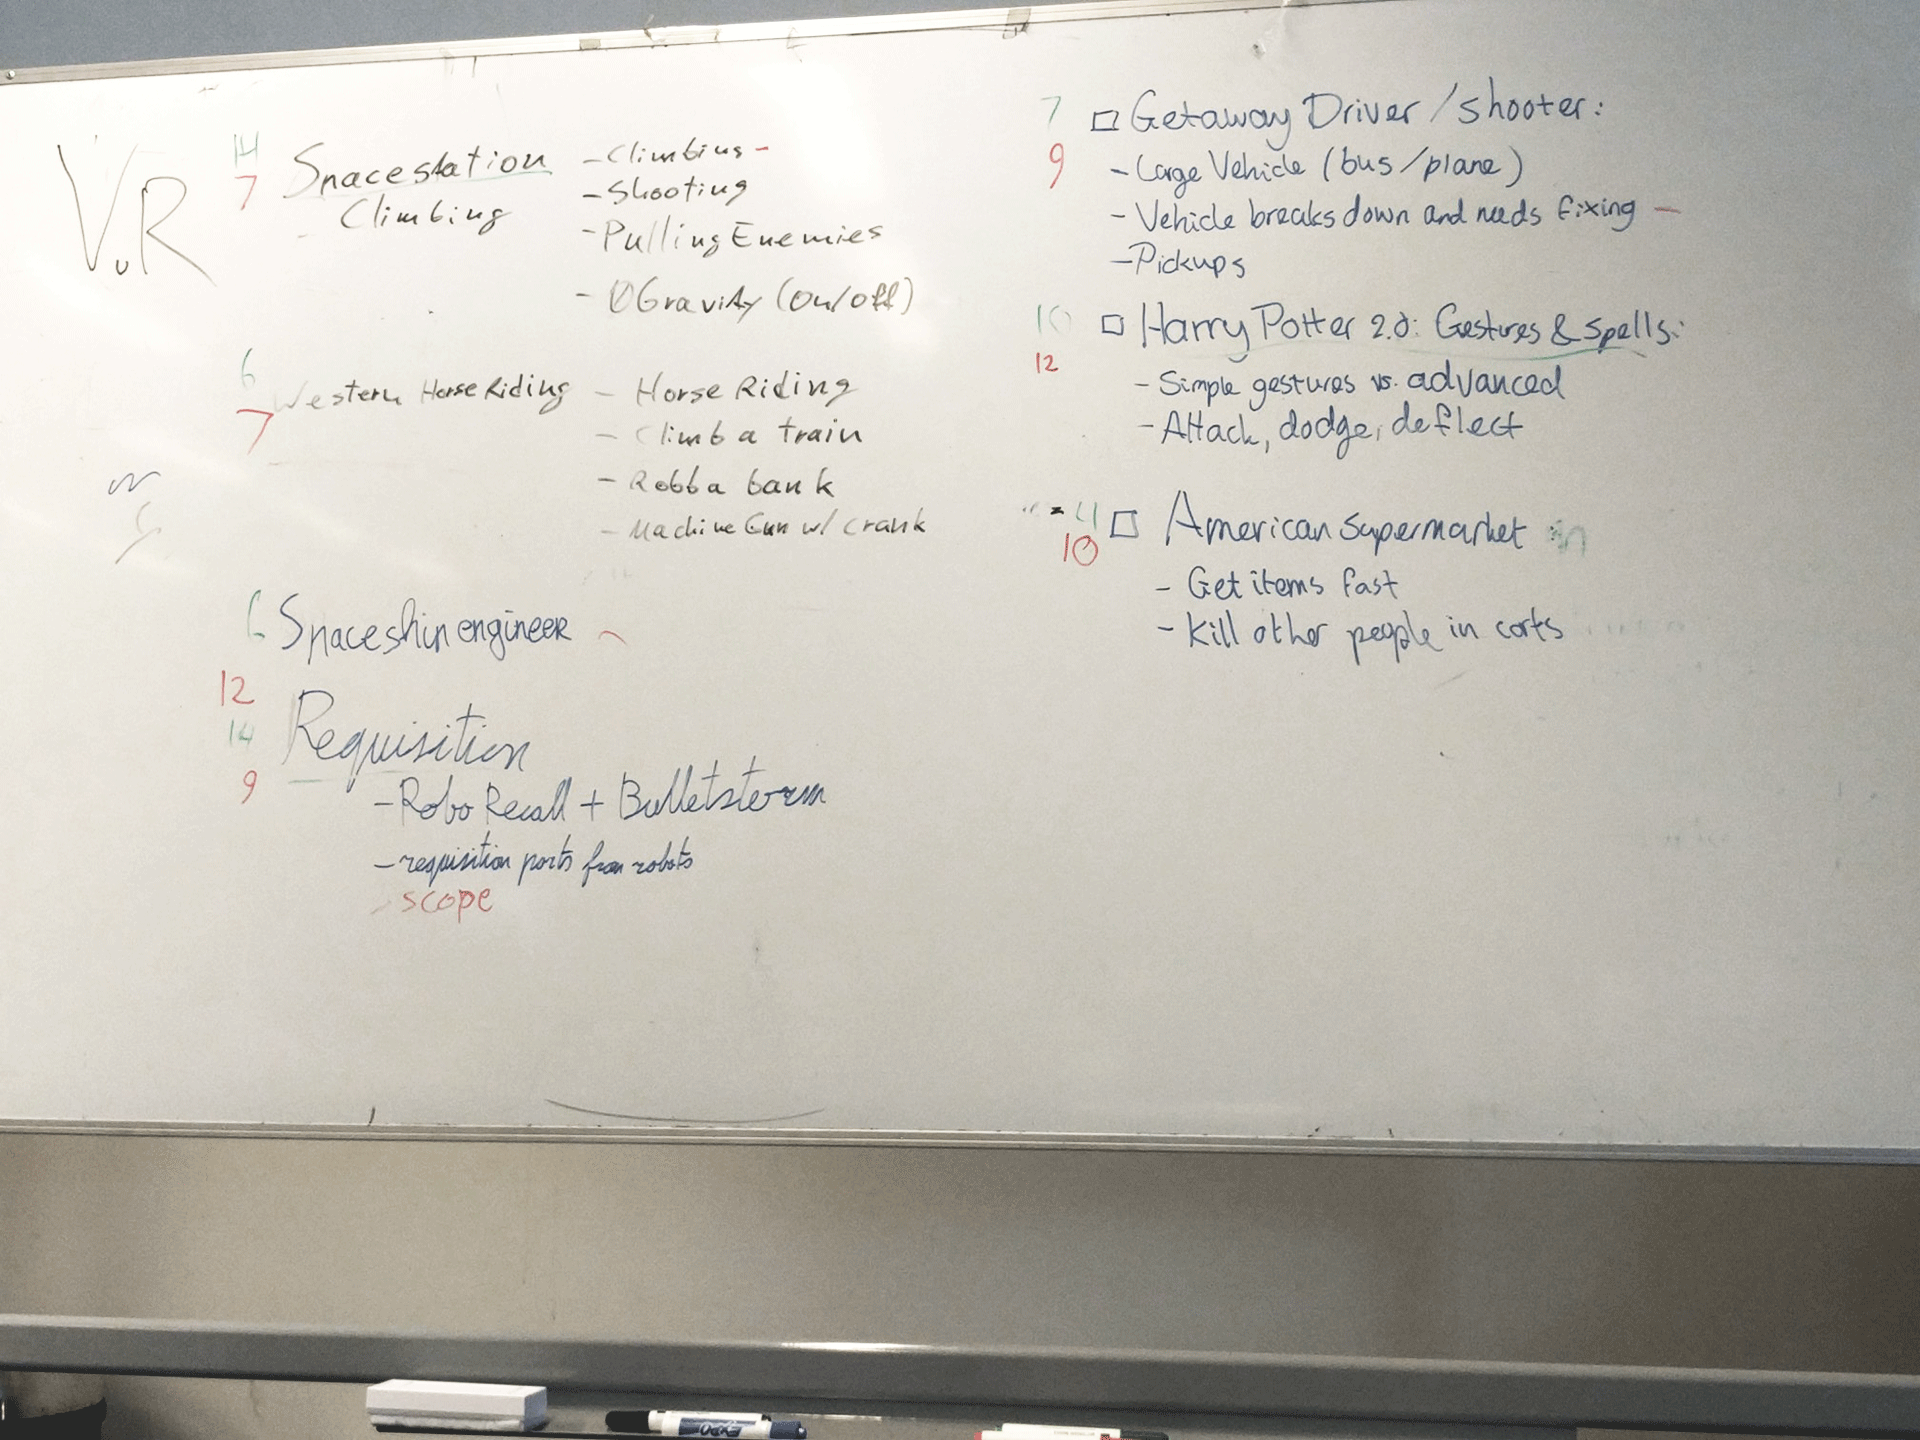 VR
14
7
Spacestation
Climbing
- Climbing -
- Shooting
- Pulling Enemies
- 0Gravity (on/off)
6
7
Western Horse Riding
- Horse Riding
- Climb a train
- Robb a bank
- Machine Gun w/ crank
6 Spaceship engineer
12
14
Requisition
9
- Robo Recall + Bulletstorm
- requisition parts from robots
- scope
7
□ Getaway Driver / shooter:
9
- Large Vehicle (bus/plane)
- Vehicle breaks down and needs fixing -
- Pickups
10
□ Harry Potter 2.0: Gestures & spells:
12
- Simple gestures vs. advanced
- Attack, dodge, deflect
4
□ American supermarket
10
- Get items fast
- Kill other people in carts
EXPO